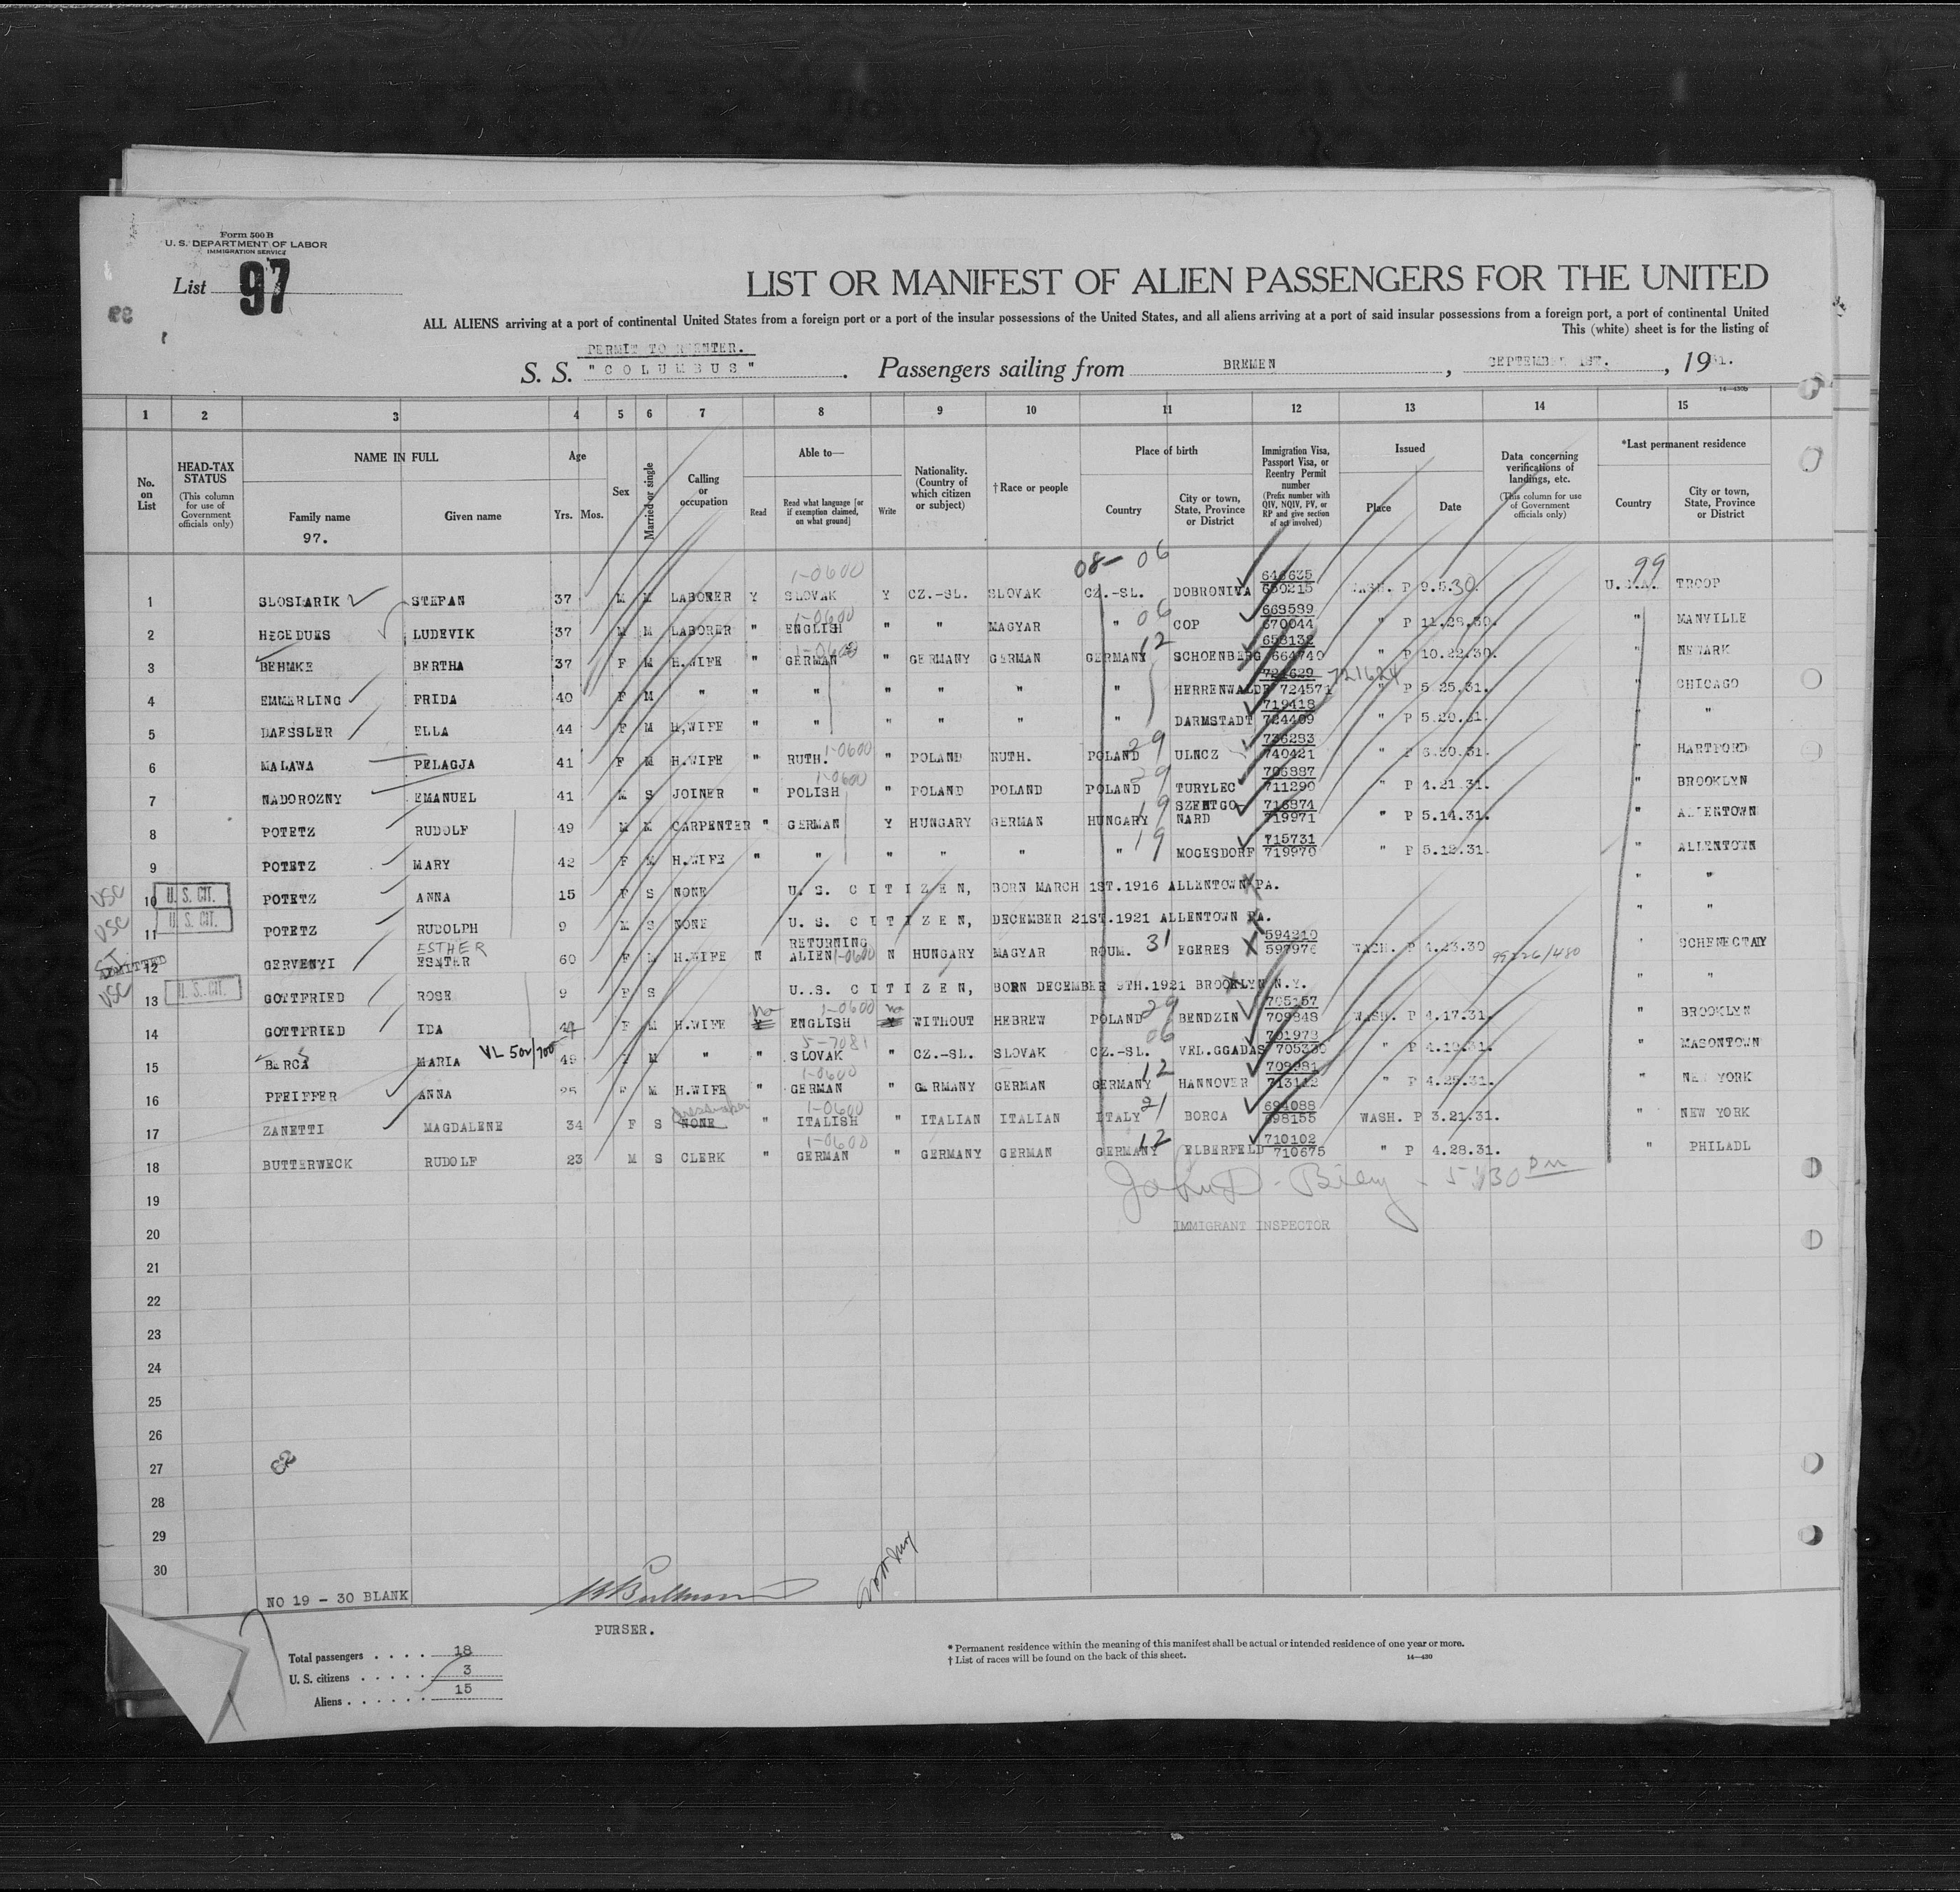 Form 500 B
U. S. DEPARTMENT OF LABOR
IMMIGRATION SERVICE
List 97
LIST OR MANIFEST OF ALIEN PASSENGERS FOR THE UNITED
ALL ALIENS arriving at a port of continental United States from a foreign port or a port of the insular possessions of the United States, and all aliens arriving at a port of said insular possessions from a foreign port, a port of continental United
This (white) sheet is for the listing of
PERMIT TO REENTER.
S. S. "COLUMBUS". Passengers sailing from BREMEN, SEPTEMBER 1ST., 1931.
1 2 3 4 5 6 7 8 9 10 11 12 13 14 15
No. on List
HEAD-TAX STATUS (This column for use of Government officials only)
NAME IN FULL Family name Given name
97.
Age Yrs. Mos.
Sex
Married or single
Calling or occupation
Able to— Read Read what language [or if exemption claimed, on what ground] Write
Nationality. (Country of which citizen or subject)
†Race or people
Place of birth Country City or town, State, Province or District
Immigration Visa, Passport Visa, or Reentry Permit number (Prefix number with QIV, NQIV, PV, or RP and give section of act involved)
Issued Place Date
Data concerning verifications of landings, etc. (This column for use of Government officials only)
*Last permanent residence Country City or town, State, Province or District
08- 06 99
1-0600
1 SLOSIARIK STEPAN 37 M M LABORER Y SLOVAK Y CZ.-SL. SLOVAK CZ.-SL. DOBRONIVA 650215 WASH. P 9.5.30. U.S.A. TROOP
1-0600 06
2 HEGEDUES LUDEVIK 37 M M LABORER " ENGLISH " " MAGYAR " COP 668589 670044 " P 11.28.30. " MANVILLE
1-0600 12
3 BEHMKE BERTHA 37 F M H.WIFE " GERMAN " GERMANY GERMAN GERMANY SCHOENBERG 658132 664740 " P 10.22.30. " NEWARK
4 EMMERLING FRIDA 40 F M " " " " " " " HERRENWALDE 724571 721624 " P 5.25.31. " CHICAGO
5 DAESSLER ELLA 44 F M H,WIFE " " " " " " DARMSTADT 719418 724409 " P 5.20.31. " "
6 MALAWA PELAGJA 41 F M H.WIFE " RUTH. 1-0600 " POLAND RUTH. POLAND 29 ULNCZ 736283 740421 " P 6.30.31. " HARTFORD
1-0600 29
7 NADOROZNY EMANUEL 41 M S JOINER " POLISH " POLAND POLAND POLAND TURYLEC 706887 711290 " P 4.21.31. " BROOKLYN
8 POTETZ RUDOLF 49 M M CARPENTER " GERMAN Y HUNGARY GERMAN HUNGARY 19 SZENTGO- NARD 716874 719971 " P 5.14.31. " ALLENTOWN
9 POTETZ MARY 42 F M H.WIFE " " " " " " 19 MOGESDORF 715731 719970 " P 5.12.31. " ALLENTOWN
USC 10 U. S. CIT. POTETZ ANNA 15 F S NONE U. S. CITIZEN, BORN MARCH 1ST.1916 ALLENTOWN PA. " "
USC 11 U. S. CIT. POTETZ RUDOLPH 9 M S NONE U. S. CITIZEN, DECEMBER 21ST.1921 ALLENTOWN PA. " "
ESTHER
SI ADMITTED 12 GERVENYI ESZTER 60 F M H.WIFE N RETURNING ALIEN 1-0600 N HUNGARY MAGYAR ROUM. 31 EGERES 594210 597976 WASH. P 4.23.30 " SCHENECTADY
USC 13 U. S. CIT. GOTTFRIED ROSE 9 F S U..S. CITIZEN, BORN DECEMBER 9TH.1921 BROOKLYN N.Y. " "
no 1-0600 no
14 GOTTFRIED IDA 44 F M H.WIFE ENGLISH WITHOUT HEBREW POLAND 29 BENDZIN 705157 709848 WASH. P 4.17.31. " BROOKLYN
5-7081 06
15 BERCA MARIA 49 F M " " SLOVAK " CZ.-SL. SLOVAK CZ.-SL. VEL.GGADAS 701973 705330 " P 4.10.31. " MASONTOWN
1-0600 12
16 PFEIFFER ANNA 25 F M H.WIFE " GERMAN " GERMANY GERMAN GERMANY HANNOVER 709981 713112 " P 4.25.31. " NEW YORK
dressmaker 1-0600
17 ZANETTI MAGDALENE 34 F S NONE " ITALISH " ITALIAN ITALIAN ITALY 21 BORCA 694088 698155 WASH. P 3.21.31. " NEW YORK
1-0600 12
18 BUTTERWECK RUDOLF 23 M S CLERK " GERMAN " GERMANY GERMAN GERMANY ELBERFELD 710102 710675 " P 4.28.31. " PHILADL
19 5:30 pm
IMMIGRANT INSPECTOR
20
21
22
23
24
25
26
27
28
29
30
NO 19 - 30 BLANK
PURSER.
Total passengers .... 18
U. S. citizens ..... 3
Aliens ...... 15
* Permanent residence within the meaning of this manifest shall be actual or intended residence of one year or more.
† List of races will be found on the back of this sheet.
14—430